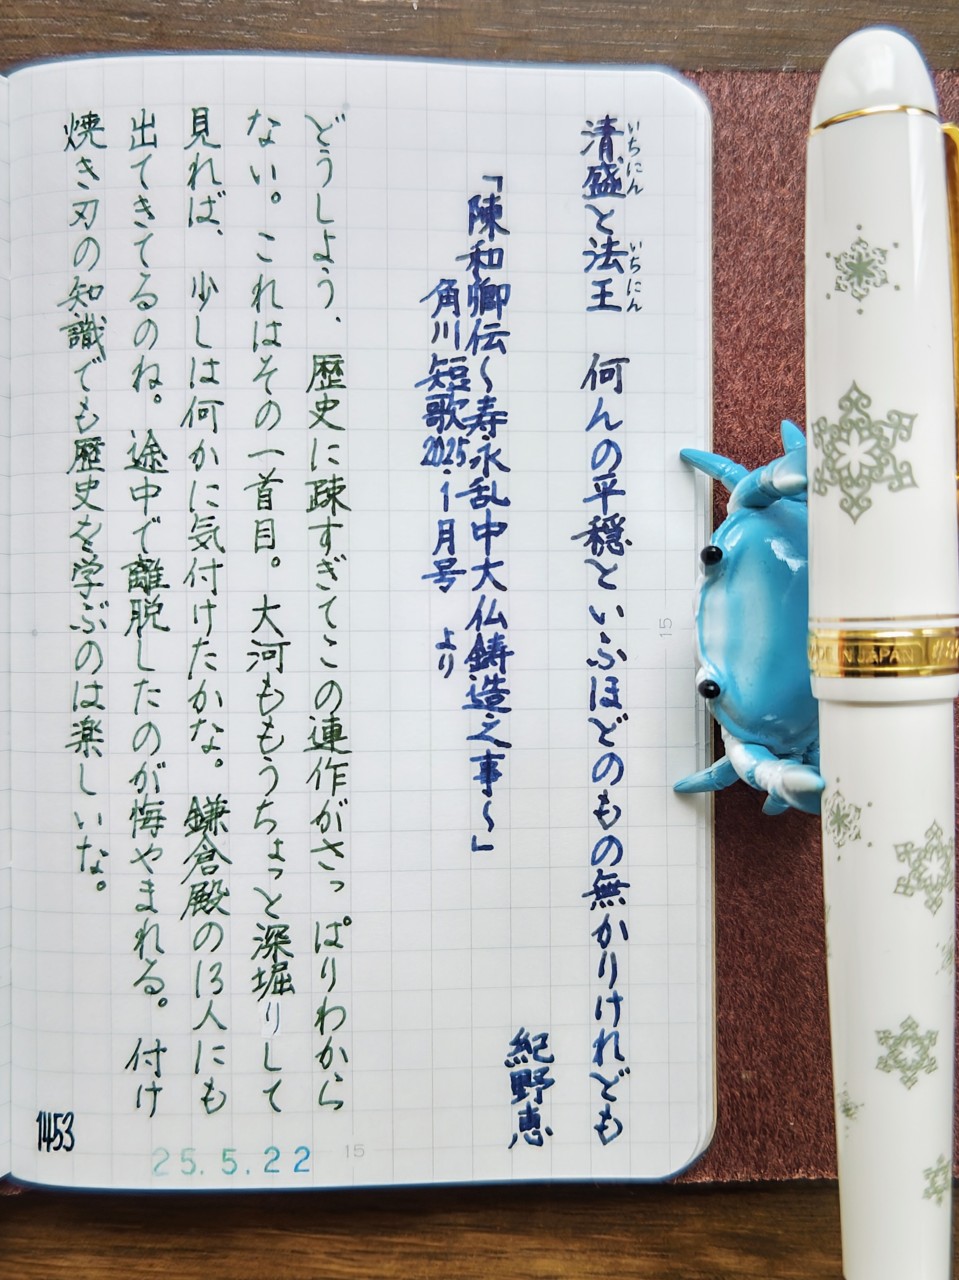 清盛と法王　何んの平穏といふほどのもの無かりけれども
いちにん　いちにん
紀野恵
「陳和卿伝〜寿永乱中大仏鋳造之事〜」
角川短歌2025.1月号　より
どうしよう、歴史に疎すぎてこの連作がさっぱりわから
ない。これはその一首目。大河ももうちょっと深堀りして
見れば、少しは何かに気付けたかな。鎌倉殿の13人にも
出てきてるのね。途中で離脱したのが悔やまれる。付け
焼き刃の知識でも歴史を学ぶのは楽しいな。
1453
25.5.22
15
15
MADE IN JAPAN